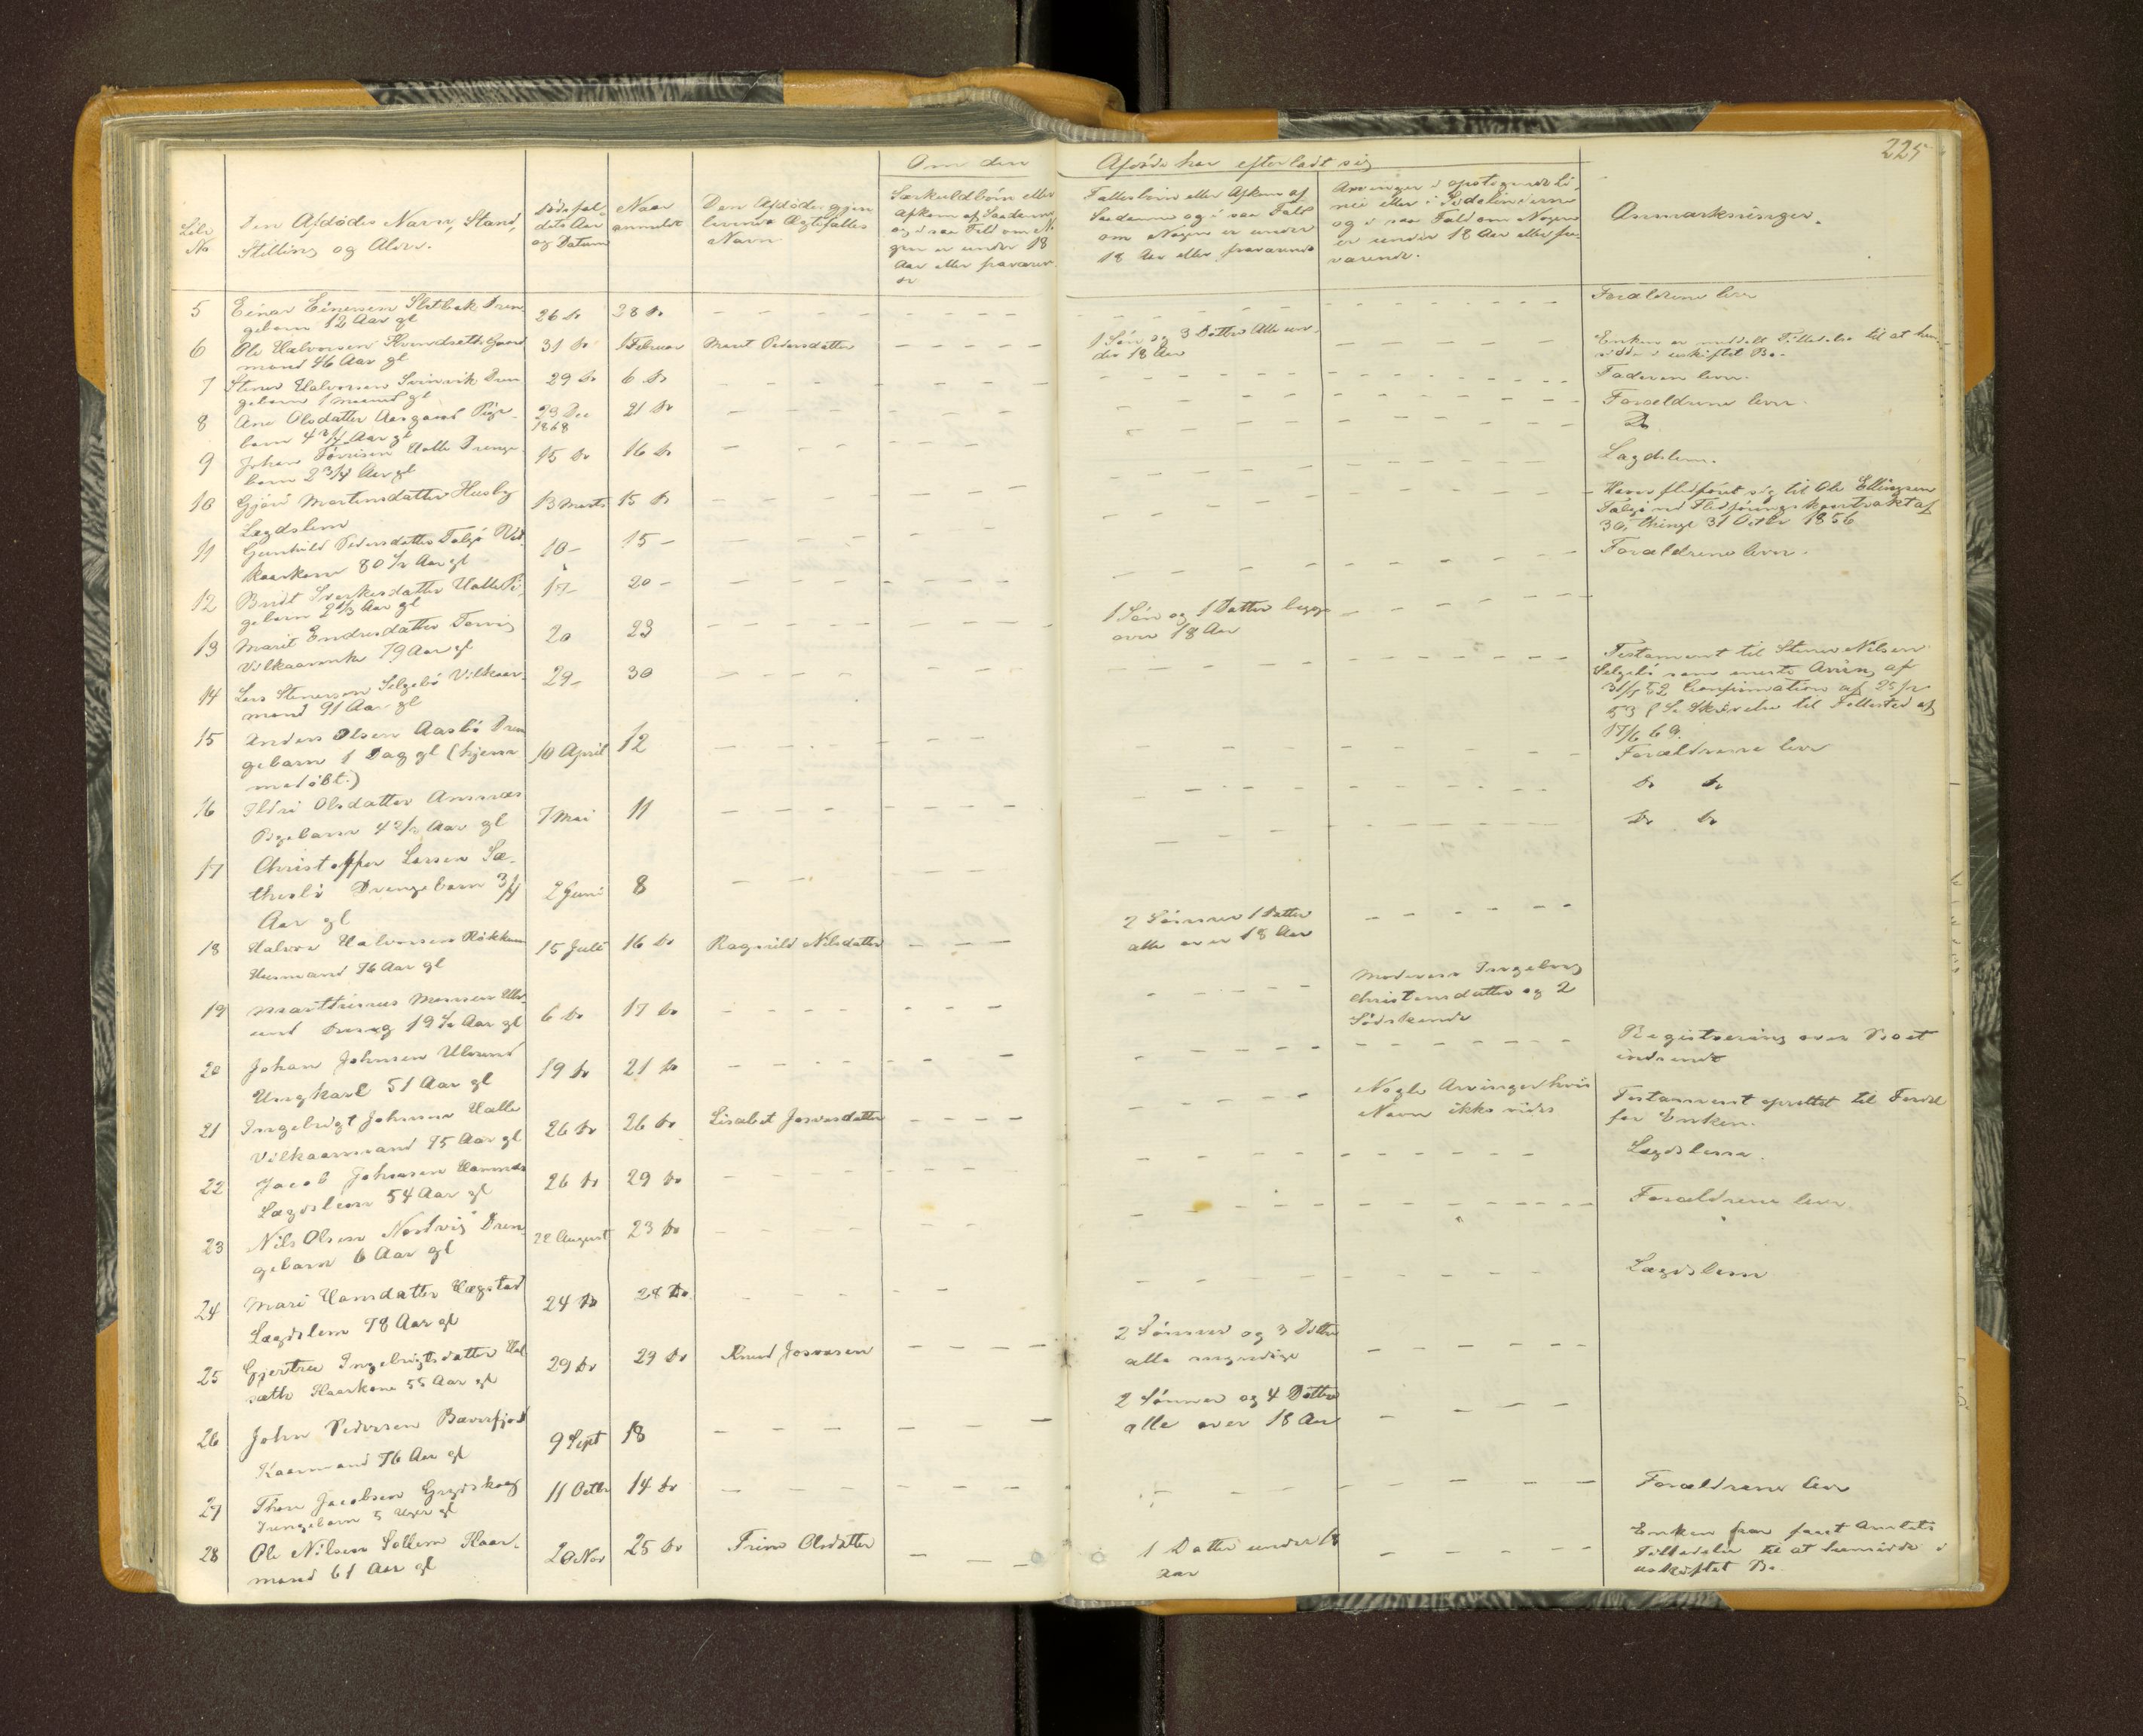 225
Om den Afdöde har efterladt sig
Löbe
No
Den Afdödes Navn, Stand,
Stilling og Alder.
Dödsfal-
dets Aar
og Datum
Naar
anmeldt
Den Afdödes gjen
levende Ægtefælles
Navn
Særkuldbörn eller
Afkom af Saadanne
og i saa Fald om No-
gen er under 18
Aar eller fraværen-
de
Fællesbörn eller Afkom af
Saadanne og i saa Fald
om Nogen er under
18 Aar eller fraværende
Arvinger i opstigende Li-
nie eller i Sidelinierne
og i saa Fald om Nogen
er under 18 Aar eller fra-
værende.
Anmærkninger.
5 Einar Einersen Dren
gebarn 12 Aar gl
26 do 28 do
Forældrene lever
6 Ole Halvorsen Gaard
mand 46 Aar gl
31 do 1 Februar Marit Pedersdatter
1 Sön og 3 Dötter Alle un-
der 18 Aar
Enken er meddelt Tilladelse til at hen
sidde i uskiftet Bo.
7 Stener Halvorsen Svinvik Dren
gebarn 1 maaned gl
29 do 6 do
Faderen lever.
8 Ane Olsdatter Aasgaard Pige-
barn 4 3/4 Aar gl
23 Dec
1868
21 do
Forældrene lever.
9 Johan Halle Drenge-
barn 2 3/4 Aar gl
15 do 16 do
Do
10 Gjöri Martinsdatter Husby
Lægdslem
13 Marts 15 do
Lægdslem.
11 Gunhild Pedersdatter Talgö Vil-
kaarkone 80 1/2 Aar gl
10 - 15 -
Haver fledföret sig til Ole Ellingsen
Talgö ved Fledförings kontrakt af
30, thingl 31 Octbr 1856
12 Bridt Sverkesdatter Halle Pi-
gebarn 2 1/3 Aar gl
17 - 20 -
Forældrene lever.
13 Marit Endresdatter Torvig
Vilkaarenke 79 Aar gl
20 23
1 Sön og 1 Datter begge
over 18 Aar
14 Lars Stenersen Selgebö Vilkaar-
mand 91 Aar gl
29 - 30
Testament til Stener Nilsen
Selgebö som eneste Arving af
31/5 52 Confirmation af 25/2
53 Skrivelse til Follested af
17/6 69.
15 Anders Olsen Aasbö Dren
gebarn 1 Dag gl (hjem-
medöbt.)
10 April 12
Forældrene lever
16 Ildri Olsdatter Aamnes
Pigebarn 4 Aar gl
7 Mai 11
do do
17 Christoffer Larsen Sæ-
thesbö Drengebarn 3/4
Aar gl
2 Juni 8
do do
18 Halvor Halvorsen Rökkum
Husmand 76 Aar gl
15 Juli 16 do Ragnild Nilsdatter
2 Sönner 1 Datter
alle over 18 Aar
19 Marthinus Monsen Ulv-
und Dreng 19 1/2 Aar gl
6 do 17 do
Moderen Ingeborg
Christensdatter og 2
Södskende
20 Johan Johnsen Ulvund
Ungkarl 51 Aar gl
19 do 21 do
Registrering over Boet
indsendt
21 Ingebrigt Johnsen Halle
Vilkaarmand 75 Aar gl
26 do 26 do Lisabet Josvasdatter
Nogle Arvinger hvis
Navn ikke vides
Testament oprettet til Fordel
for Enken.
22 Jacob Johnsen Hamnes
Lægdslem 54 Aar gl
26 do 29 do
Lægdslem.
23 Nils Olsen Nordvig Dren
gebarn 6 Aar gl
22 August 23 do
Forældrene lever.
24 Mari Hansdatter Hægstad
Lægdslem 78 Aar gl
24 do 28 do
Lægdslem
25 Gjertru Ingebrigtsdatter Hal
sæth Kaarkone 55 Aar gl
29 do 29 do Knud Josvasen
2 Sönner og 3 Dötter
alle myndige
26 John Pedersen Bæverfjord
Kaarmand 76 Aar gl
9 Sept 18
2 Sönner og 4 Dötter
alle over 18 Aar
27 Thore Jacobsen Grydskog
Drengebarn 5 Uger gl
11 Octbr 14 do
Forældrene lever
28 Ole Nilsen Sollem Kaar-
mand 61 Aar gl
20 Nov 25 do Olsdatter
1 Datter under 18
Aar
Enken har faaet Amtets
Tilladelse til at hensidde i
uskiftet Bo.